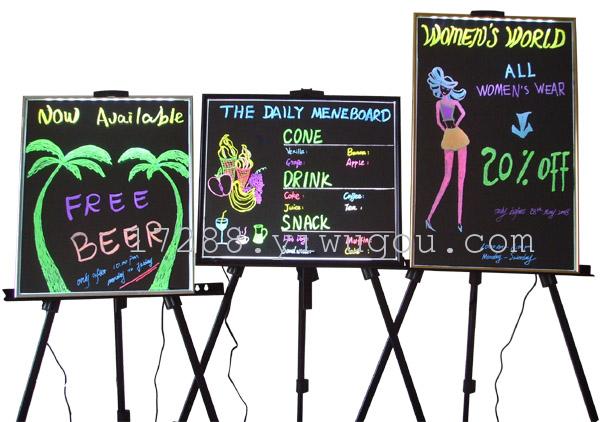 Now Available
FREE
BEER
only after 10:00 pm
monday to
THE DAILY MENEBOARD
CONE
Vanilla: Banana:
Grape: Apple:
DRINK
Coke: Coffee:
Juice: Tea:
SNACK
Hot Dog: Muffin:
Sandwich: Cake:
WOMEN'S WORLD
ALL
WOMEN'S WEAR
20% OFF
only before 28th May 2008
Monday - Sunday
17288.yiwugou.com